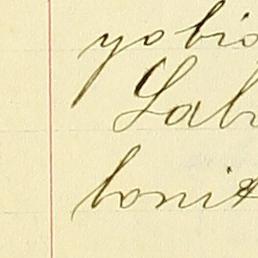 yo bio
Lab
bonit